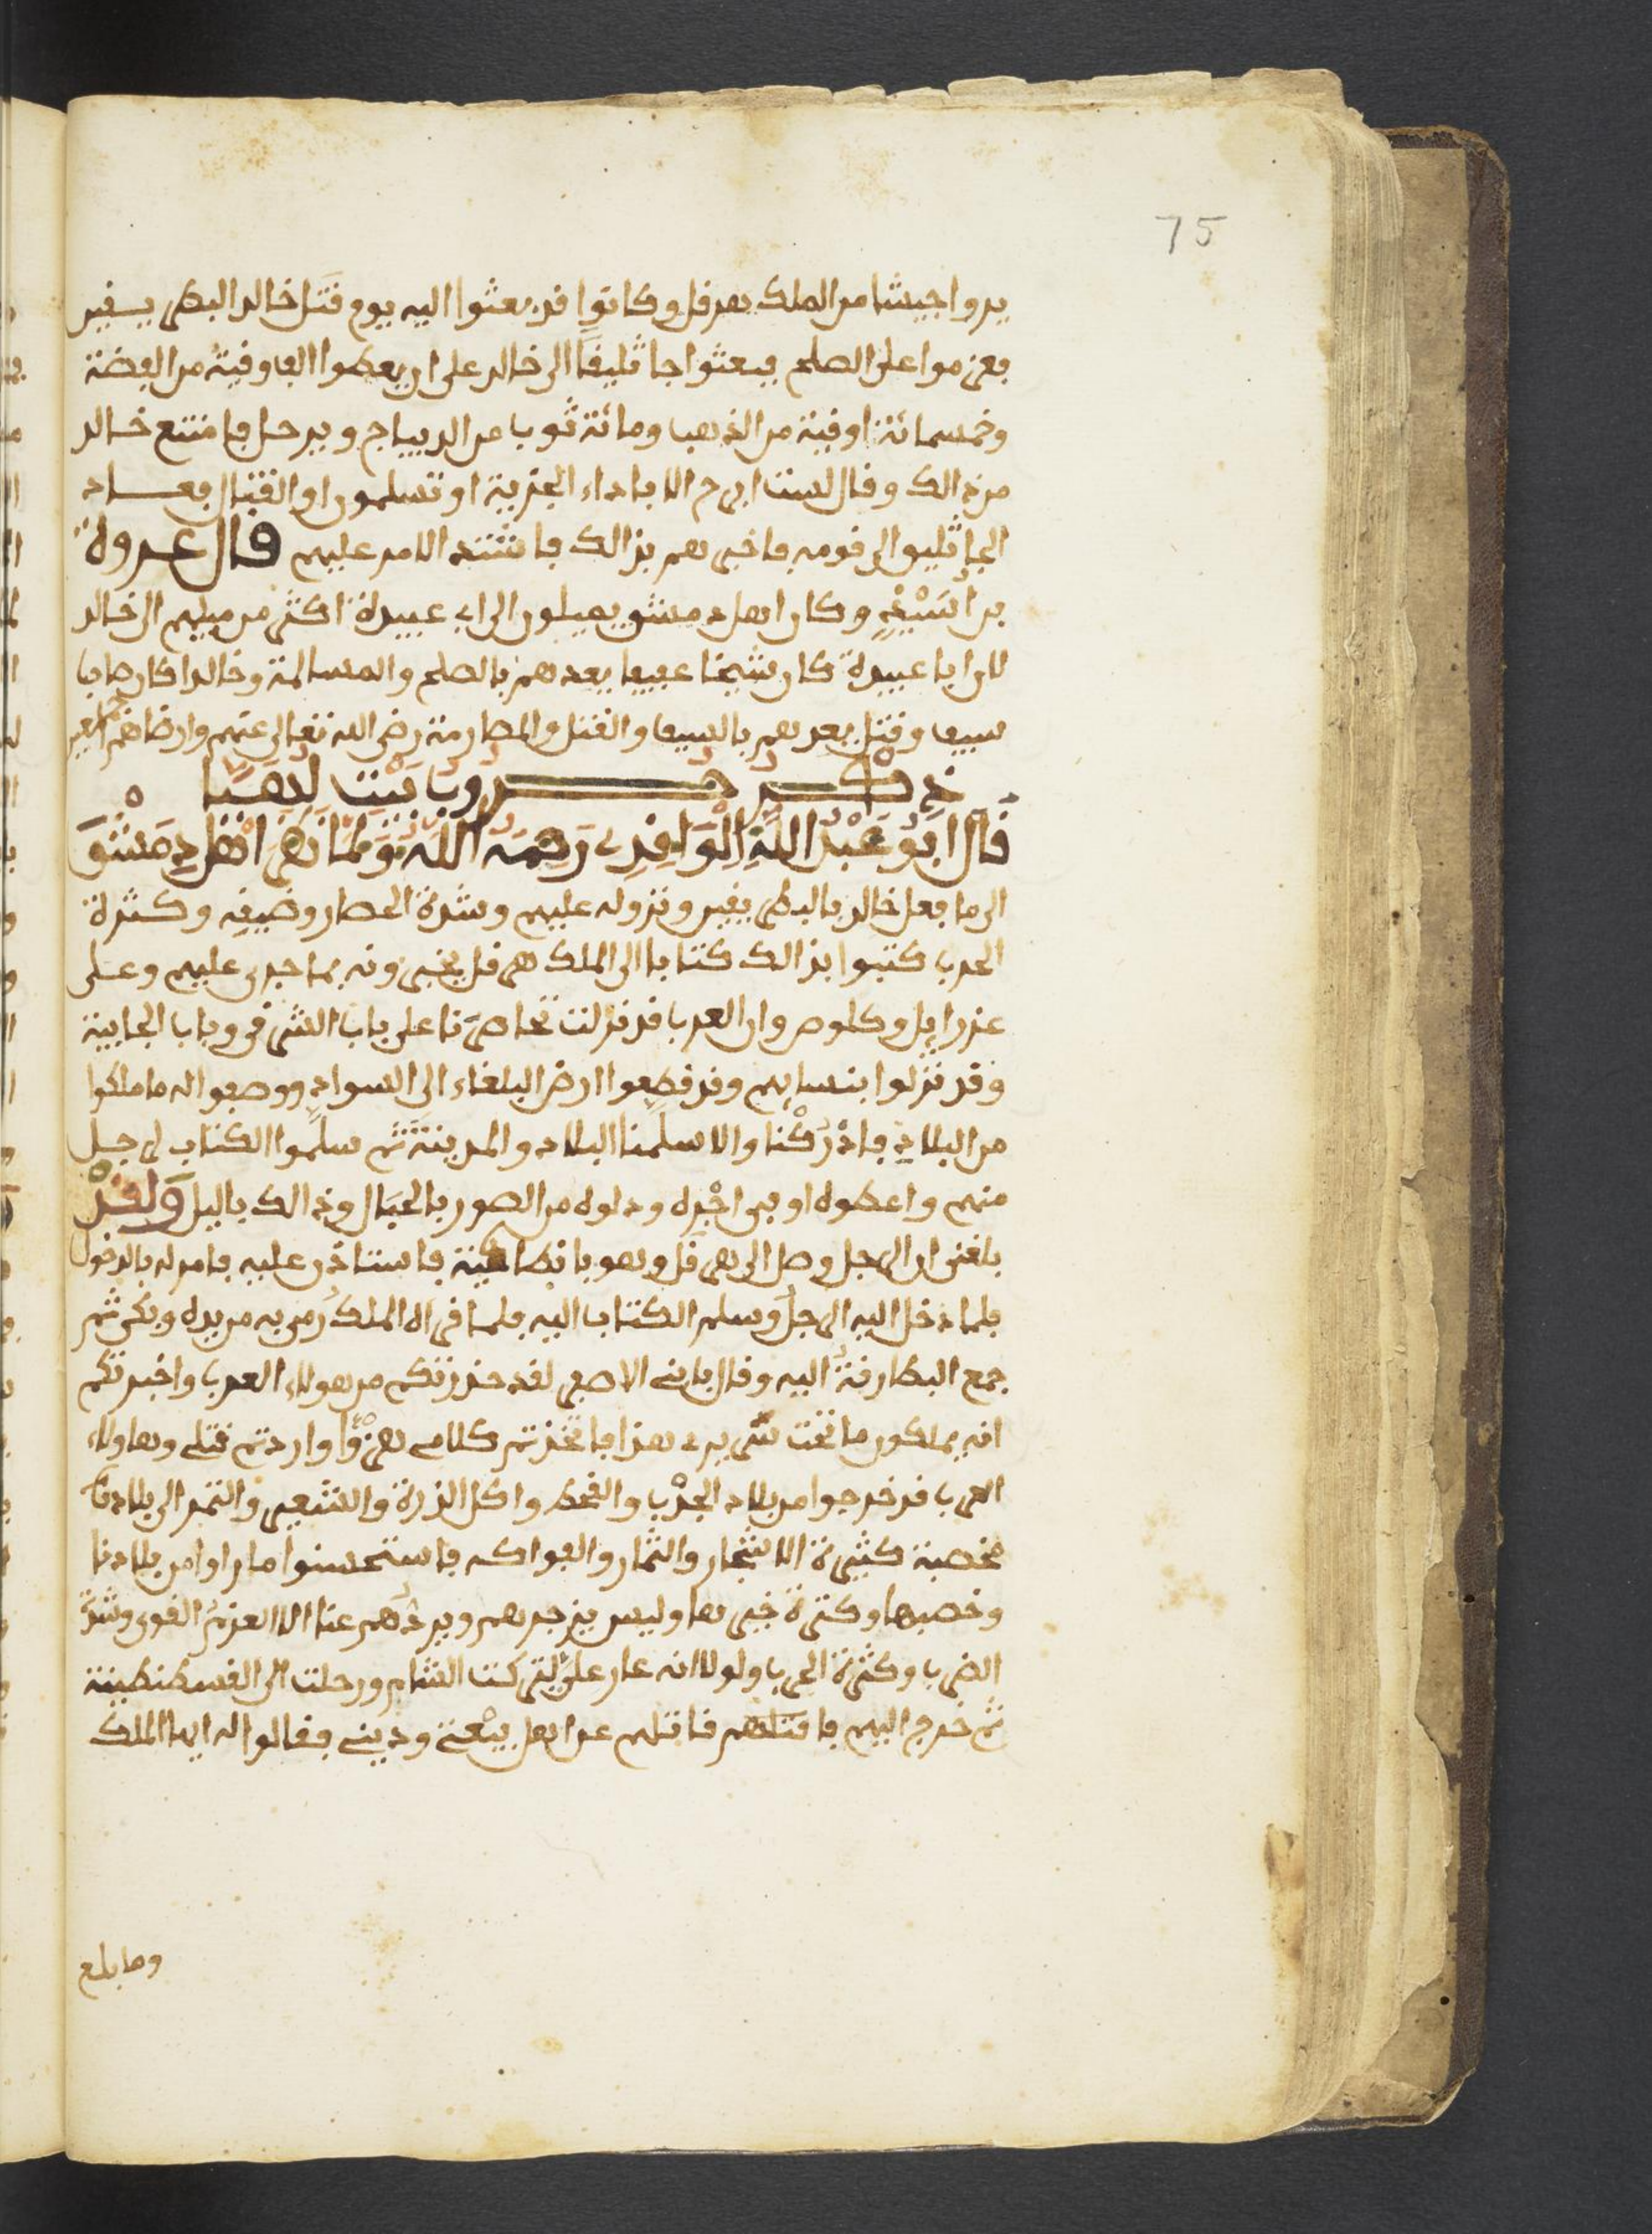 75
يروا جيشا من الملك هرقل وكانوا قد بعثوا اليه يوم قتل خالد البطريقين
فعزموا على الصلح فبعثوا جاثليقا الى خالد على ان يعطوا الف اوقية من الفضة
وخمسمائة اوقية من الذهب ومائة ثوب من الديباج ويرحل فامتنع خالد
من ذالك وقال لست ابرح الا باداء الجزية او تسلمون او القتال فعاد
الجاثليق الى قومه فاخبرهم بذالك فاشتد الامر عليهم قال عروة
بن وكان اهل دمشق يميلون الى ابي عبيدة اكثر من ميلهم الى خالد
لان ابا عبيدة كان شيخا عفيفا يعدهم بالصلح والمسالمة وخالدا كان صاحب
سيف وقتل يعدهم بالسيف والقتل والمصارمة رضي الله تعالى عنهم وارضاهم اجمعين
ذكر حروب بيت لهيا
قال ابو عبد الله الواقدي رحمه الله ولما نظر اهل دمشق
الى ما فعل خالد بالبطريقين ونزوله عليهم وشدة الحصار وضيقه وكثرة
الحرب كتبوا بذالك كتابا الى الملك هرقل يخبرونه بما جرى عليهم وعلى
عزرايل وكلوص وان العرب قد نزلت تحاصرنا على باب الشرقي وباب الجابية
وقد نزلوا بنسايهم وقد قطعوا ارض البلقاء الى السواد ووصفوا له ما ملكوا
من البلاد فادركنا والا سلمنا البلاد والمدينة ثم سلموا الكتاب لرجل
منهم واعطوه اوفى اجره ودلوه من الصور بالحبال وذالك باليل ولقد
بلغني ان الرجل وصل الى هرقل وهو بانطاكية فاستاذن عليه فامر له بالدخول
فلما دخل اليه الرجل وسلم الكتاب اليه فلما قراه الملك رمى به من يده وبكى ثم
جمع البطارقة اليه وقال يا بني الاصفر لقد حذرتكم من هولاء العرب واخبرتكم
انهم يملكون ما تحت سريري هذا فاتخذتم كلامي هزؤا واردتم قتلي وهاولاء
العرب قد خرجوا من بلاد الجدب والقحط واكل الذرة والشعير والتمر الى بلادنا
مخصبة كثيرة الاشجار والثمار والفواكه فاستحسنوا ما راوا من بلادنا
وخصبها وكثرة خيرها وليس يزجرهم ويردهم عنا الا العزم القوى وشدة
الضرب وكثرة الحرب ولولا انه عار علي لتركت الشام ورحلت الى القسطنطينة
ثم خرج اليهم فاقتلهم قاتلهم عن اهل بيعتي وديني فقالوا له ايها الملك
وما بلغ